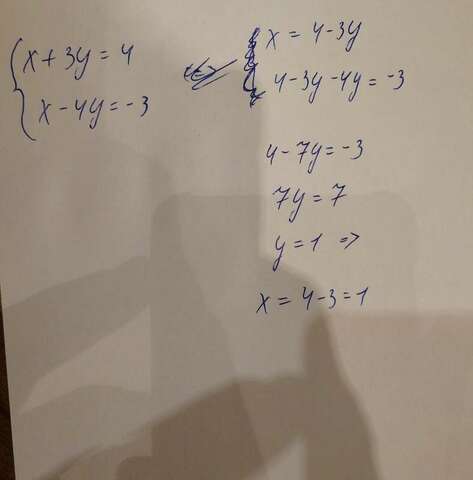 x + 3y = 4
x - 4y = -3
x = 4 - 3y
4 - 3y - 4y = -3
4 - 7y = -3
7y = 7
y = 1 =>
x = 4 - 3 = 1